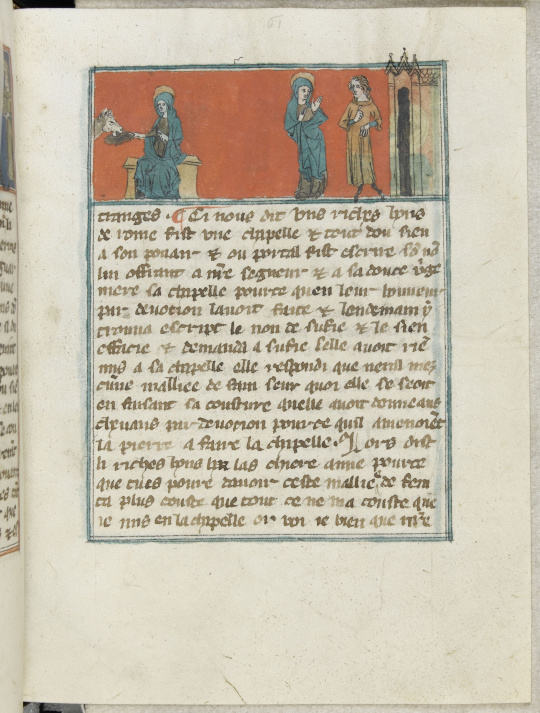 tranges · Ci nous dit vns riches hons
de rome fist vne chappelle & tout dou sien
a son pouair & ou portail fist escrire son nõ
lui offrant a nr̃e segneur & a sa douce v̾ge
mere sa chapelle pour ce quen leur honneur
par deuotion lauoit faite & lendemain y
trouua escript le non de susie & le sien
effacie & demanda a susie selle auoit riẽ
mis a sa chappelle elle respondi que nenil mez
cune mallice de fain seur quoi elle se seoit
en faisant sa cousture quelle auoit donne aus
cheuaus par deuotion pour ce quil amenoiẽt
la pierre a faire la chapelle · Lors dist
li riches hons has las chiere amie pour ce
que tu es poure dauoir ceste mallice de fein
ta plus couste que tout ce ne ma couste que
ie mis en la chappelle or voi ie bien que nr̃e